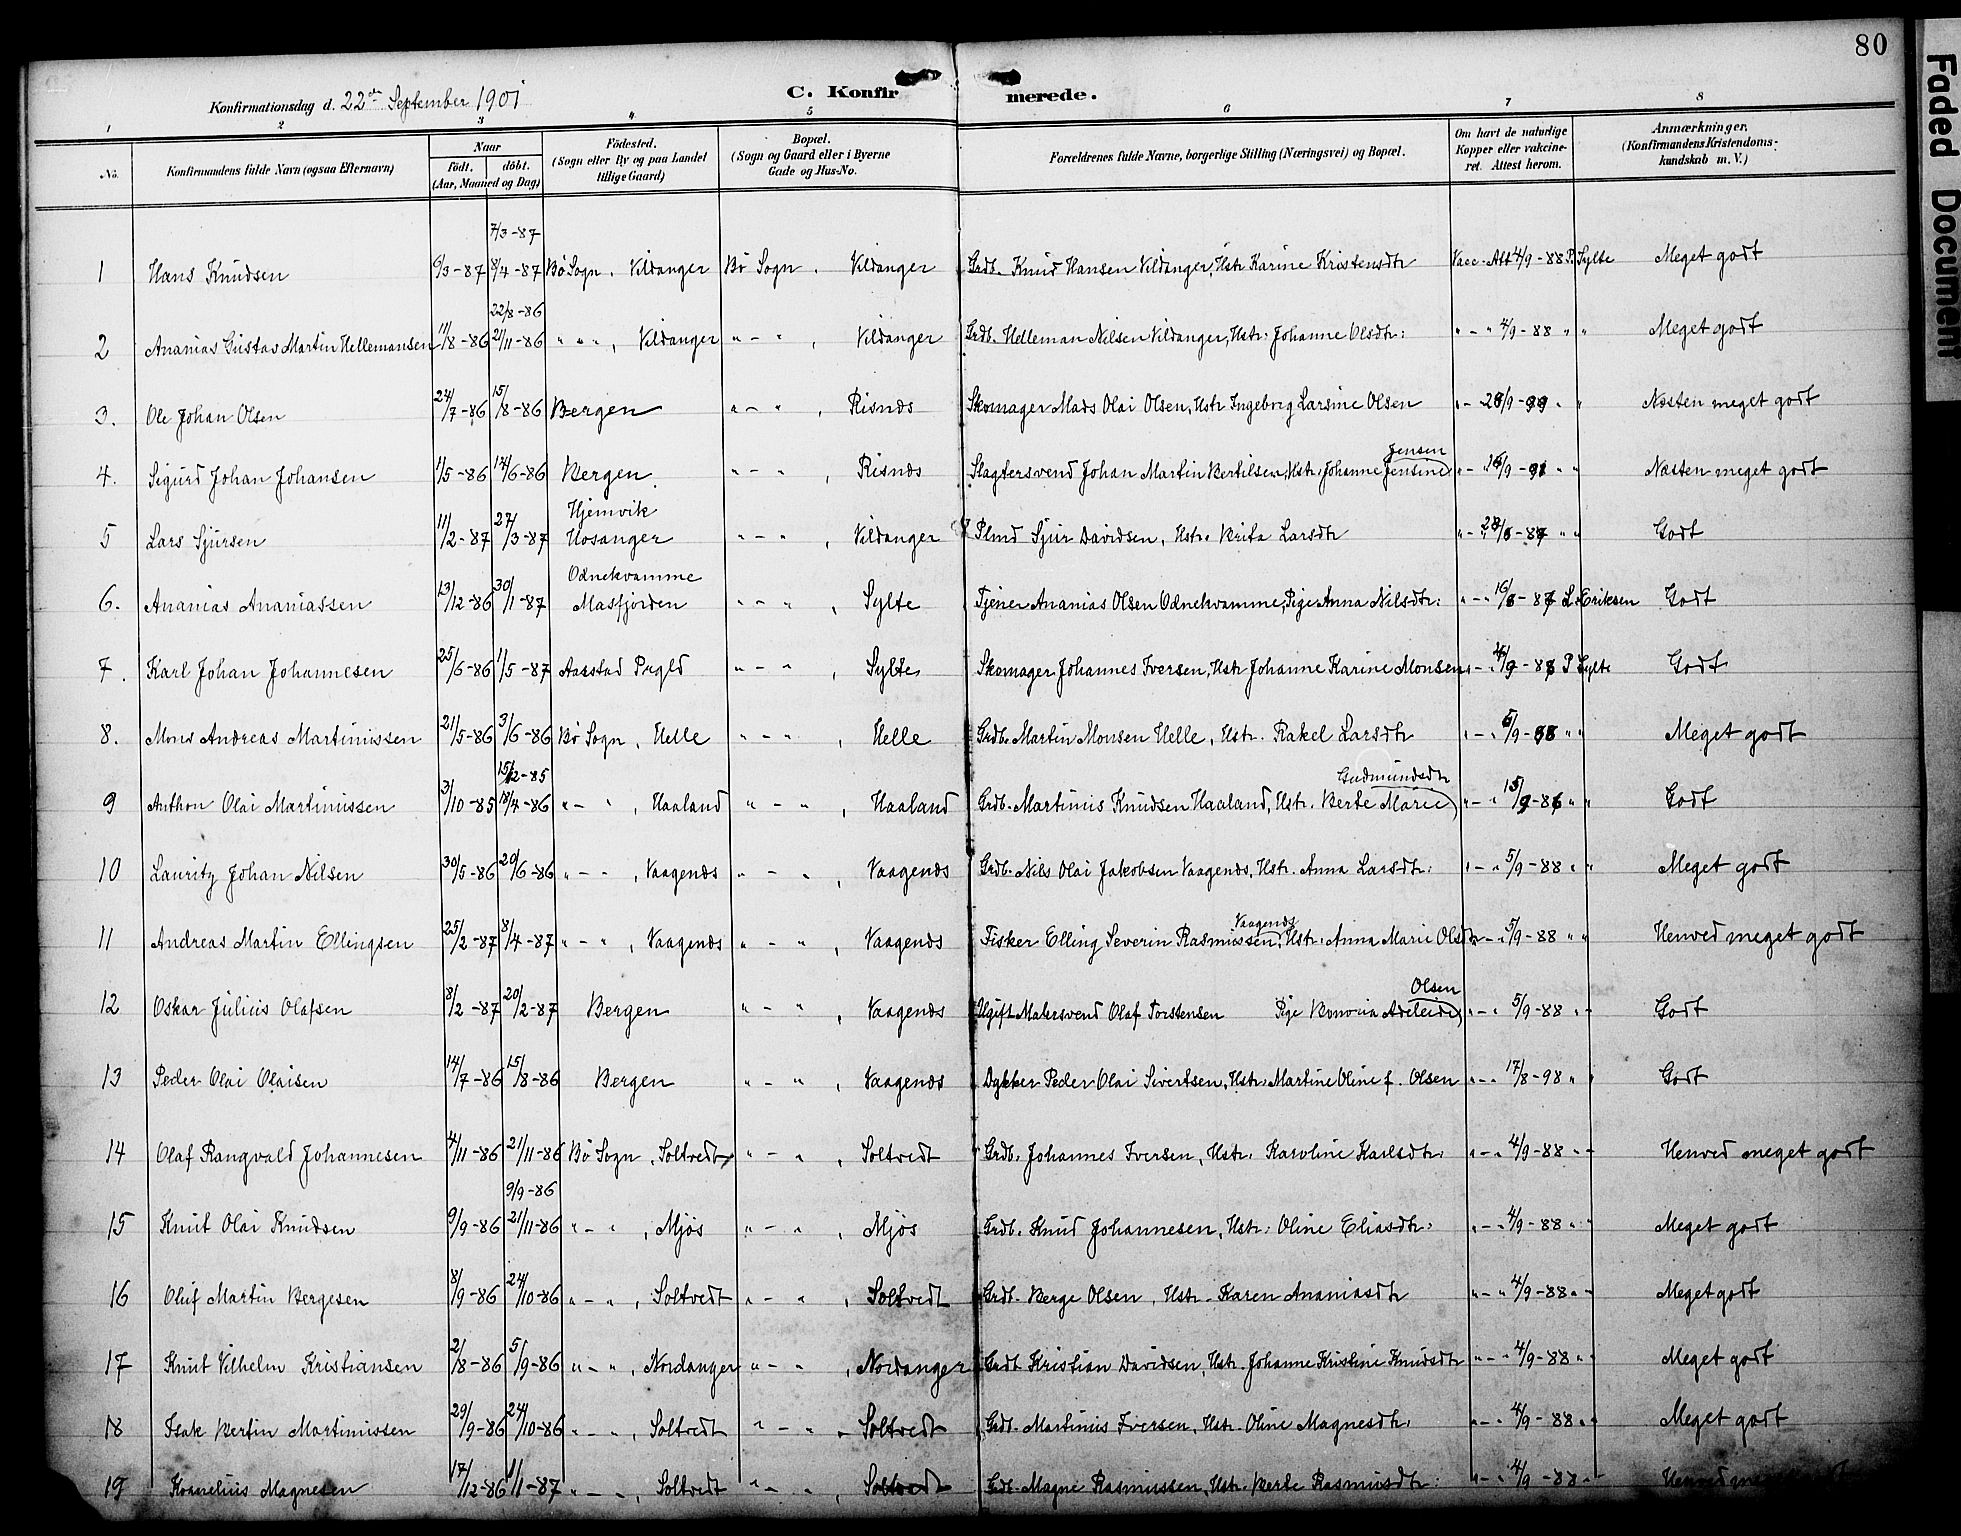 80
Faded Document
Konfirmationsdag d. 22de September 1901
C. Konfirmerede.
1 2 3 4 5 6 7 8
No.
Konfirmandens fulde Navn (ogsaa Efternavn)
Naar
Födt. döbt.
(Aar, Maaned og Dag)
Födested.
(Sogn eller By og paa Landet tillige Gaard)
Bopæl.
(Sogn og Gaard eller i Byerne Gade og Hus-No.
Forældrenes fulde Navne, borgerlige Stilling (Næringsvei) og Bopæl.
Om havt de naturlige Kopper eller vakcineret. Attest herom.
Anmærkninger.
(Konfirmandens Kristendomskundskab m. V.)
7/3-87
1 Hans Knudsen 6/3-87 8/4-87 Bø Sogn, Vildanger Bø Sogn, Vildanger Grdb. Knud Hansen Vildanger, Hstr Karine Kristensdtr Vacc. Att 4/9-88 P. Sylte Meget godt
22/8-86
2 Ananias Gustav Martin Hellemansen 11/8-86 21/11-86 " " ", Vildanger " - ", Vildanger Grdb. Helleman Nilsen Vildanger, Hstr. Johanne Olsdtr: " - " 4/9-88 " " Meget godt
3. Ole Johan Olsen 24/7-86 15/8-86 Bergen " - ", Risnæs Skomager Mads Olai Olsen, Hstr Ingeborg Larsine Olsen Næsten meget godt
Jensen
4. Sigurd Johan Johansen 1/5-86 14/6-86 Bergen " - ", Risnæs Slagtersvend Johan Martin Bertilsen, Hstr. Johanne Jensine Næsten meget godt
Hjemvik
5 Lars Sjursen 11/2-87 27/3-87 Hosanger " - ", Vildanger Plmd Sjur Davidsen, Hstr. Brita Larsdtr Godt
Odnekvamme
6. Ananias Ananiassen 13/12-86 30/1-87 Masfjorden " - ", Sylte Tjener Ananias Olsen Odnekvamme, Pige Anna Nilsdtr: L. Eriksen Godt
7. Karl Johan Johannesen 25/6-86 1/5-87 Aasstad " - ", Sylte Skomager Johannes Iversen, Hstr Johanne Karine Monsen P Sylte Godt
8. Mons Andreas Martinussen 21/5-86 3/6-86 Bø Sogn, Helle " - ", Helle Grdb. Martin Monsen Helle, Hstr. Rakel Larsdtr Meget godt
15/12-85 Gudmundsdtr
9 Anthon Olai Martinussen 3/10-85 18/4-86 " - ", Haaland " - ", Haaland Grdb. Martinus Knudsen Haaland, Hstr. Berte Marie Godt
10 Lauritz Johan Nilsen 30/5-86 20/6-86 " - ", Vaagenæs " - ", Vaagenæs Grdb. Nils Olai Jakobsen Vaagenæs, Hstr. Anna Larsdtr: " - " 5/9-88 " " Meget godt
Vaagenæs
11 Andreas Martin Ellingsen 25/2-87 8/4-87 " - ", Vaagenæs " - ", Vaagenæs Fisker Elling Severin Rasmussen, Hstr. Anna Marie Olsdtr " - " 5/9-88 " " Henved meget godt
Olsen
12 Oskar Julius Olafsen 8/2-87 20/2-87 Bergen " - ", Vaagenæs Ugift Malersvend Olaf Torstensen Pige Adeleide " - " 5/9-88 " " Godt
13 Peder Olai Olaisen 14/7-86 15/8-86 Bergen " - ", Vaagenæs Dykker Peder Olai Sivertsen, Hstr. Martine Oline f. Olsen " - " 17/8-98 " " Godt
14 Olaf Rangvald Johannesen 4/11-86 21/11-86 Bø Sogn, Soltvedt " - ", Soltvedt Grdb. Johannes Iversen, Hstr. Karoline Karlsdtr. " - " 4/9-88 " " Henved meget godt
9/9-86
15 Knut Olai Knudsen 9/9-86 21/11-86 " - ", Mjøs " - ", Mjøs Grdb. Knud Johannesen, Hstr: Oline Eliasdtr: " - " 4/9-88 " " Meget godt
16 Oluf Martin Bergesen 8/9-86 24/10-86 " - ", Soltvedt " - ", Soltvedt Grdb. Berge Olsen, Hstr. Karen Ananiasdtr " - " 4/9-88 " " Meget godt
17 Knut Vilhelm Kristiansen 2/8-86 5/9-86 " - ", Nordanger " - ", Nordanger Grdb Kristian Davidsen, Hstr. Johanne Kristine Knudsdtr " - " 4/9-88 " " Meget godt
18 Isak Bertin Martinussen 29/9-86 24/10-86 " - ", Soltvedt " - ", Soltvedt Grdb. Martinus Iversen, Hstr. Oline Magnesdtr. " - " 4/9-88 " " Meget godt
19 Kornelius Magnesen 17/12-86 1/1-87 " - ", Soltvedt " - ", Soltvedt Grdb. Magne Rasmussen, Hstr. Berte Rasmusdtr: " - " 4/9-88 " " Henved